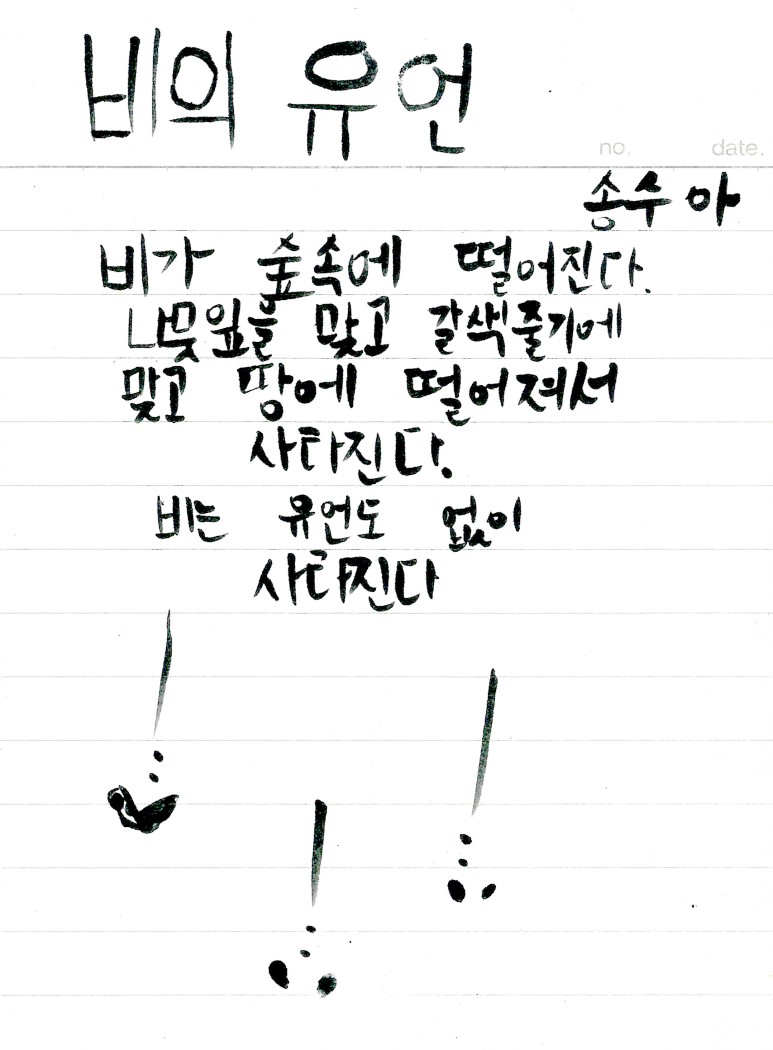 비의 유언
no. date.
송수아
비가 숲속에 떨어진다.
나뭇잎을 맞고 갈색줄기에
맞고 땅에 떨어져서
사라진다.
비는 유언도 없이
사라진다